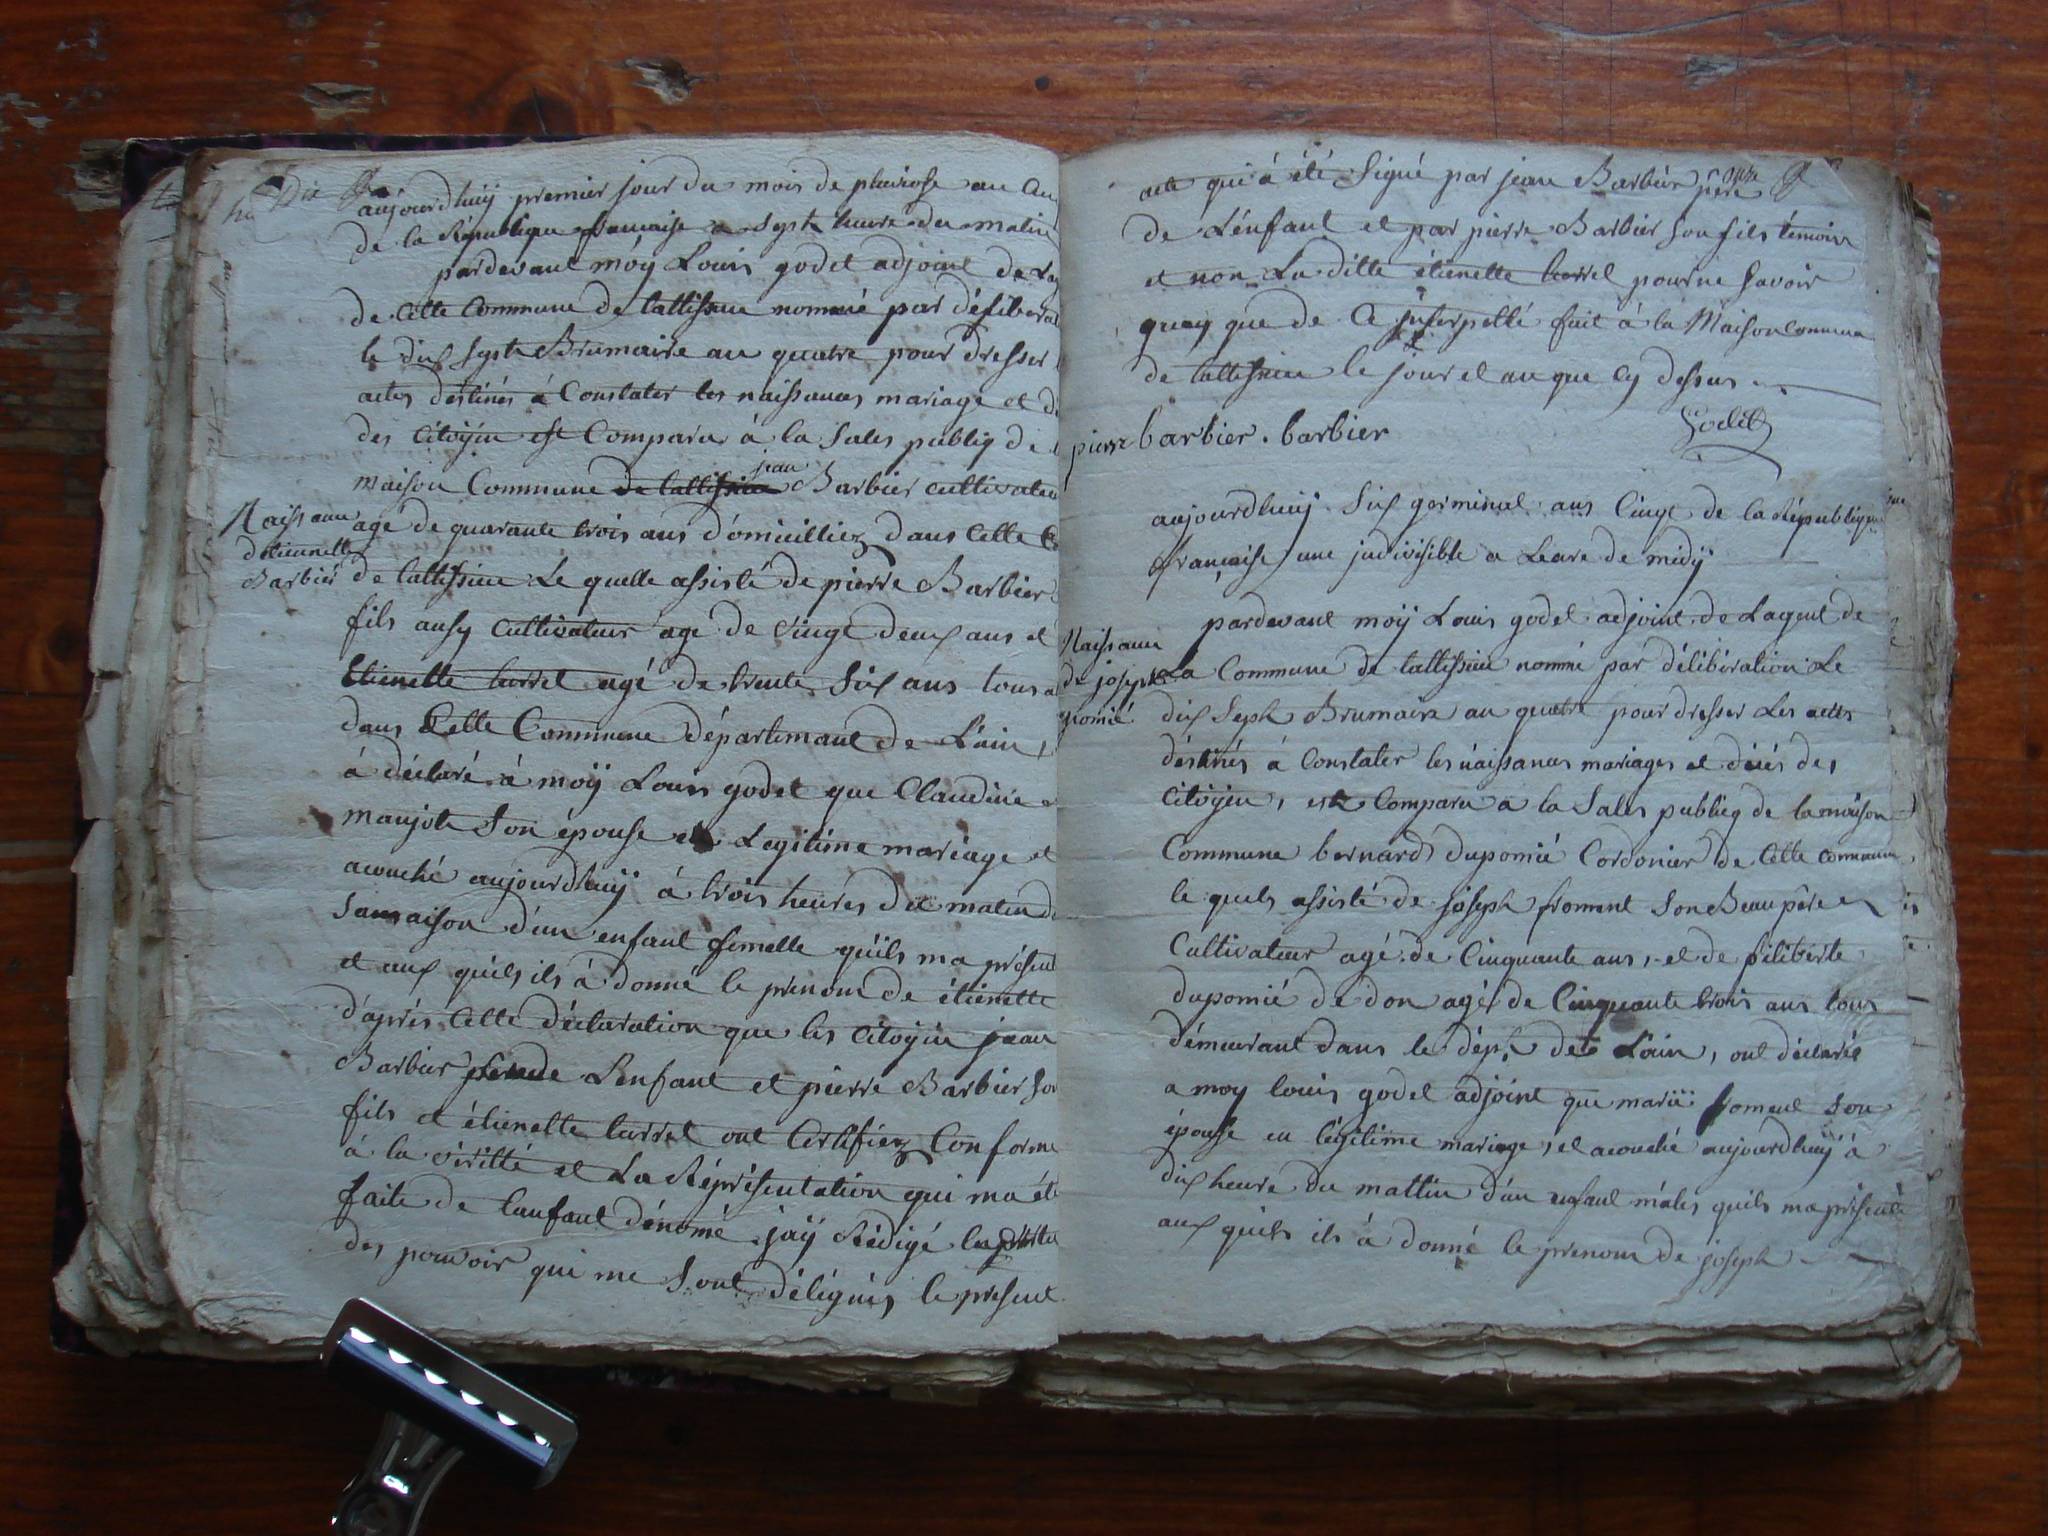 Dix
aujourdhuÿ premier jour du mois de pluviose au Cin
de la République francaise a sept heure du matin
pardevant moÿ Louis godet adjoint de La
de Cette Commune de tallissieu nommé par déliberat
le dix sept Brumaire an quatre pour dresser
actes destinés à Constater les naissances mariage et d
des Citoÿen est Comparu à la Sales publiq de
maison Commune de tallissieu jean Barbier cultivateu
Naissance
d'etiennette
Barbier
agé de quarante trois ans domicilliez dans Cette C
de tallissieu Le quelle assisté de pierre Barbier
fils ausy cultivateur agé de vingt deux ans et
Etienette turrel agé de trente Six ans tous
dans Cette Commune départemant de L'ain,
à déclaré à moÿ Louis godet que Claudine
manjote Son épouse en Legitime mariage et
acouché aujourdhuÿ à trois heures du matin d
Samaison d'un enfant femelle quils ma présent
et aux quels ils à donné le prenom de étienette
d'après Cette déclaration que les Citoÿen jean
Barbier pere de L'enfant et pierre Barbier Son
fils et étienette turrel ont Certifiez Conforme
à la véritté et La Réprésentation qui ma été
faite de Lanfant dénomé jaÿ Rédigé
des pouvoir qui me Sont délégués le présent
onze
acte qui à été Signé par jean Barbier père
de L'énfant et par pierre Barbier Son fils témoin
et non La ditte étienette turrel pour ne Savoir
quoy que de Ce jnterpellé fait à la Maison Commune
de tallissieu le jour et an que Cy dessus
pierre barbier . barbier
Godet
aujourdhuÿ Six germinal ans Cinqt de la Républiqque
française une jndivisible a Leure de midÿ
pardevant moÿ Louis godet adjoint de Lagent de
Naissance
de joseph
La Commune de tallissieu nommé par délibération Le
dix Sept Brumaire an quatre pour dresser Les actes
déstinés à Constater les naissances mariages et décés des
Citoÿen, est Comparu a la Sales publiq de la maison
Commune bernard dupomié Cordonier de Cette commune
le quels assisté de joseph froment Son Beau père
Cultivateur agé de Cinquante ans, et de filiberte
dupomié de don agé de Cinquante trois ans tous
démeurant dans le dépt de L'ain, ont déclaréé
a moy louis godet adjoint que marie froment Son
épouse en légitime mariage, et acouché aujourdhuÿ à
dix heure du mattin d'un enfant mâles quils ma présenté
aux quels ils à donné le prenom de joseph